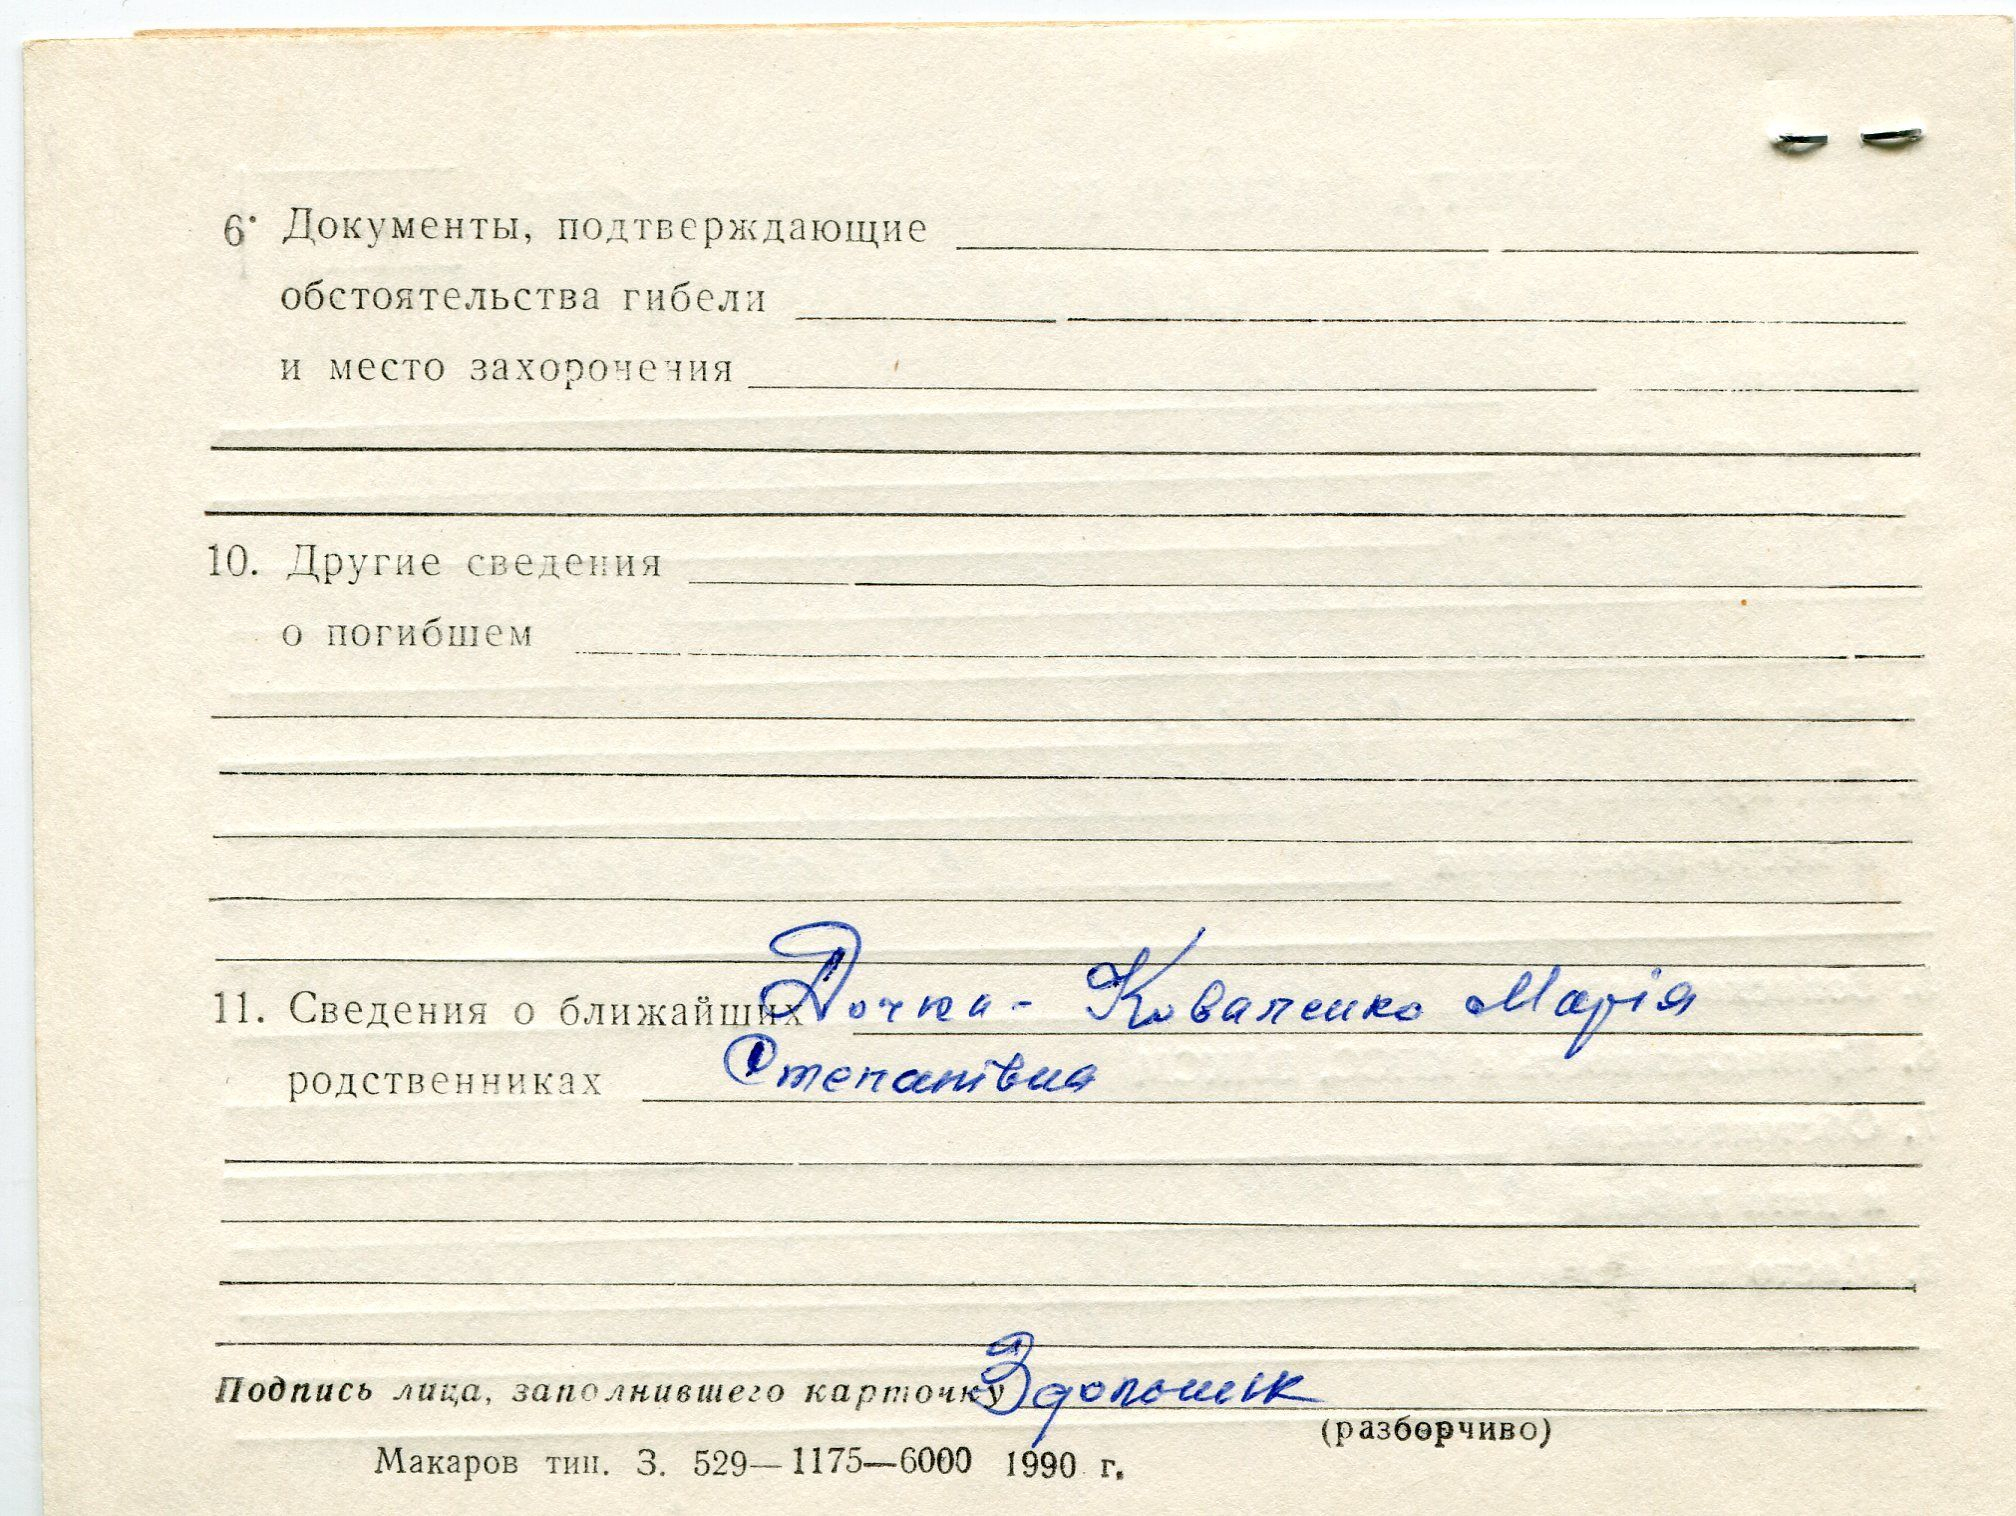 6. Документы, подтверждающие
обстоятельства гибели
и место захоронения
10. Другие сведения
о погибшем
11. Сведения о ближайших Дочка - Коваленко Марія
родственниках Степанівна
Подпись лица, заполнившего карточку
(разборчиво)
Макаров тип. З. 529—1175—6000 1990 г.